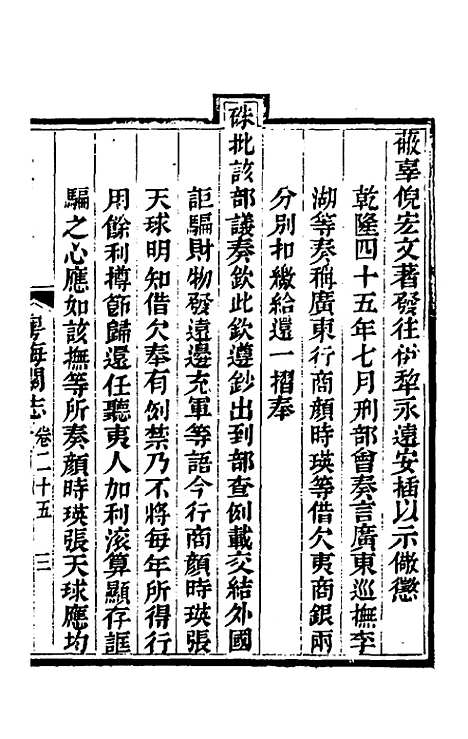 蔽辜倪宏文著發往伊犁永遠安插以示儆懲
乾隆四十五年七月刑部會奏言廣東巡撫李
湖等奏稱廣東行商顏時瑛等借欠夷商銀兩
分別扣繳給還一摺奉
硃批該部議奏欽此欽遵鈔出到部查例載交結外國
誆騙財物發遠邊充軍等語今行商顏時瑛張
天球明知借欠奉有例禁乃不將每年所得行
用餘利撙節歸還任聽夷人加利滚算顯存誆
騙之心應如該撫等所奏顏時瑛張天球應均
粵海關志 卷二十五 三